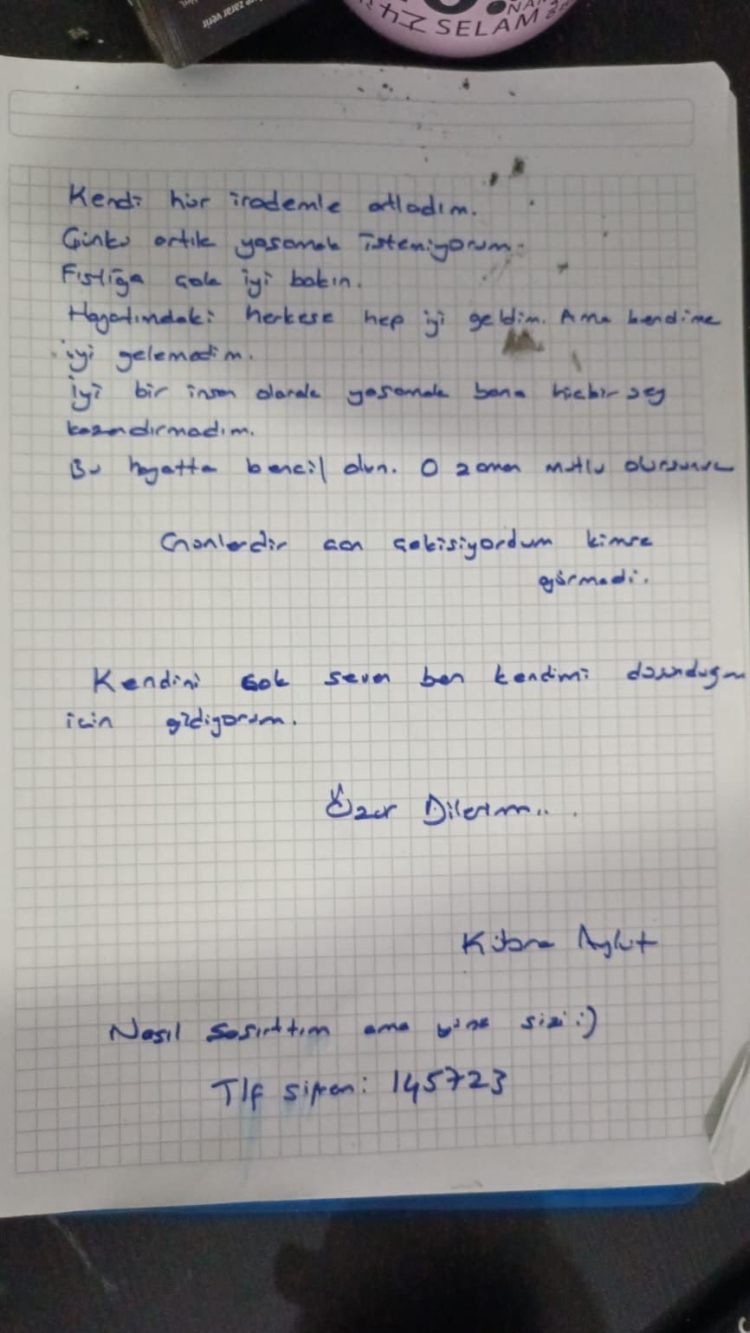 SELAM
Kendi hür irademle atladım.
Çünkü artık yaşamak istemiyorum.
Fıstığa çok iyi bakın.
Hayatımdaki herkese hep iyi geldim. Ama kendime
iyi gelemedim.
İyi bir insan olarak yaşamak bana hiçbir şey
kazandırmadım.
Bu hayatta bencil olun. O zaman mutlu olursunuz
Günlerdir can çekişiyordum kimse
görmedi.
Kendini çok seven ben kendimi düşündüğüm
için gidiyorum.
Özür Dilerim...
Kübra Aykut
Nasıl şaşırttım ama yine sizi :)
Tlf şifrem: 145723